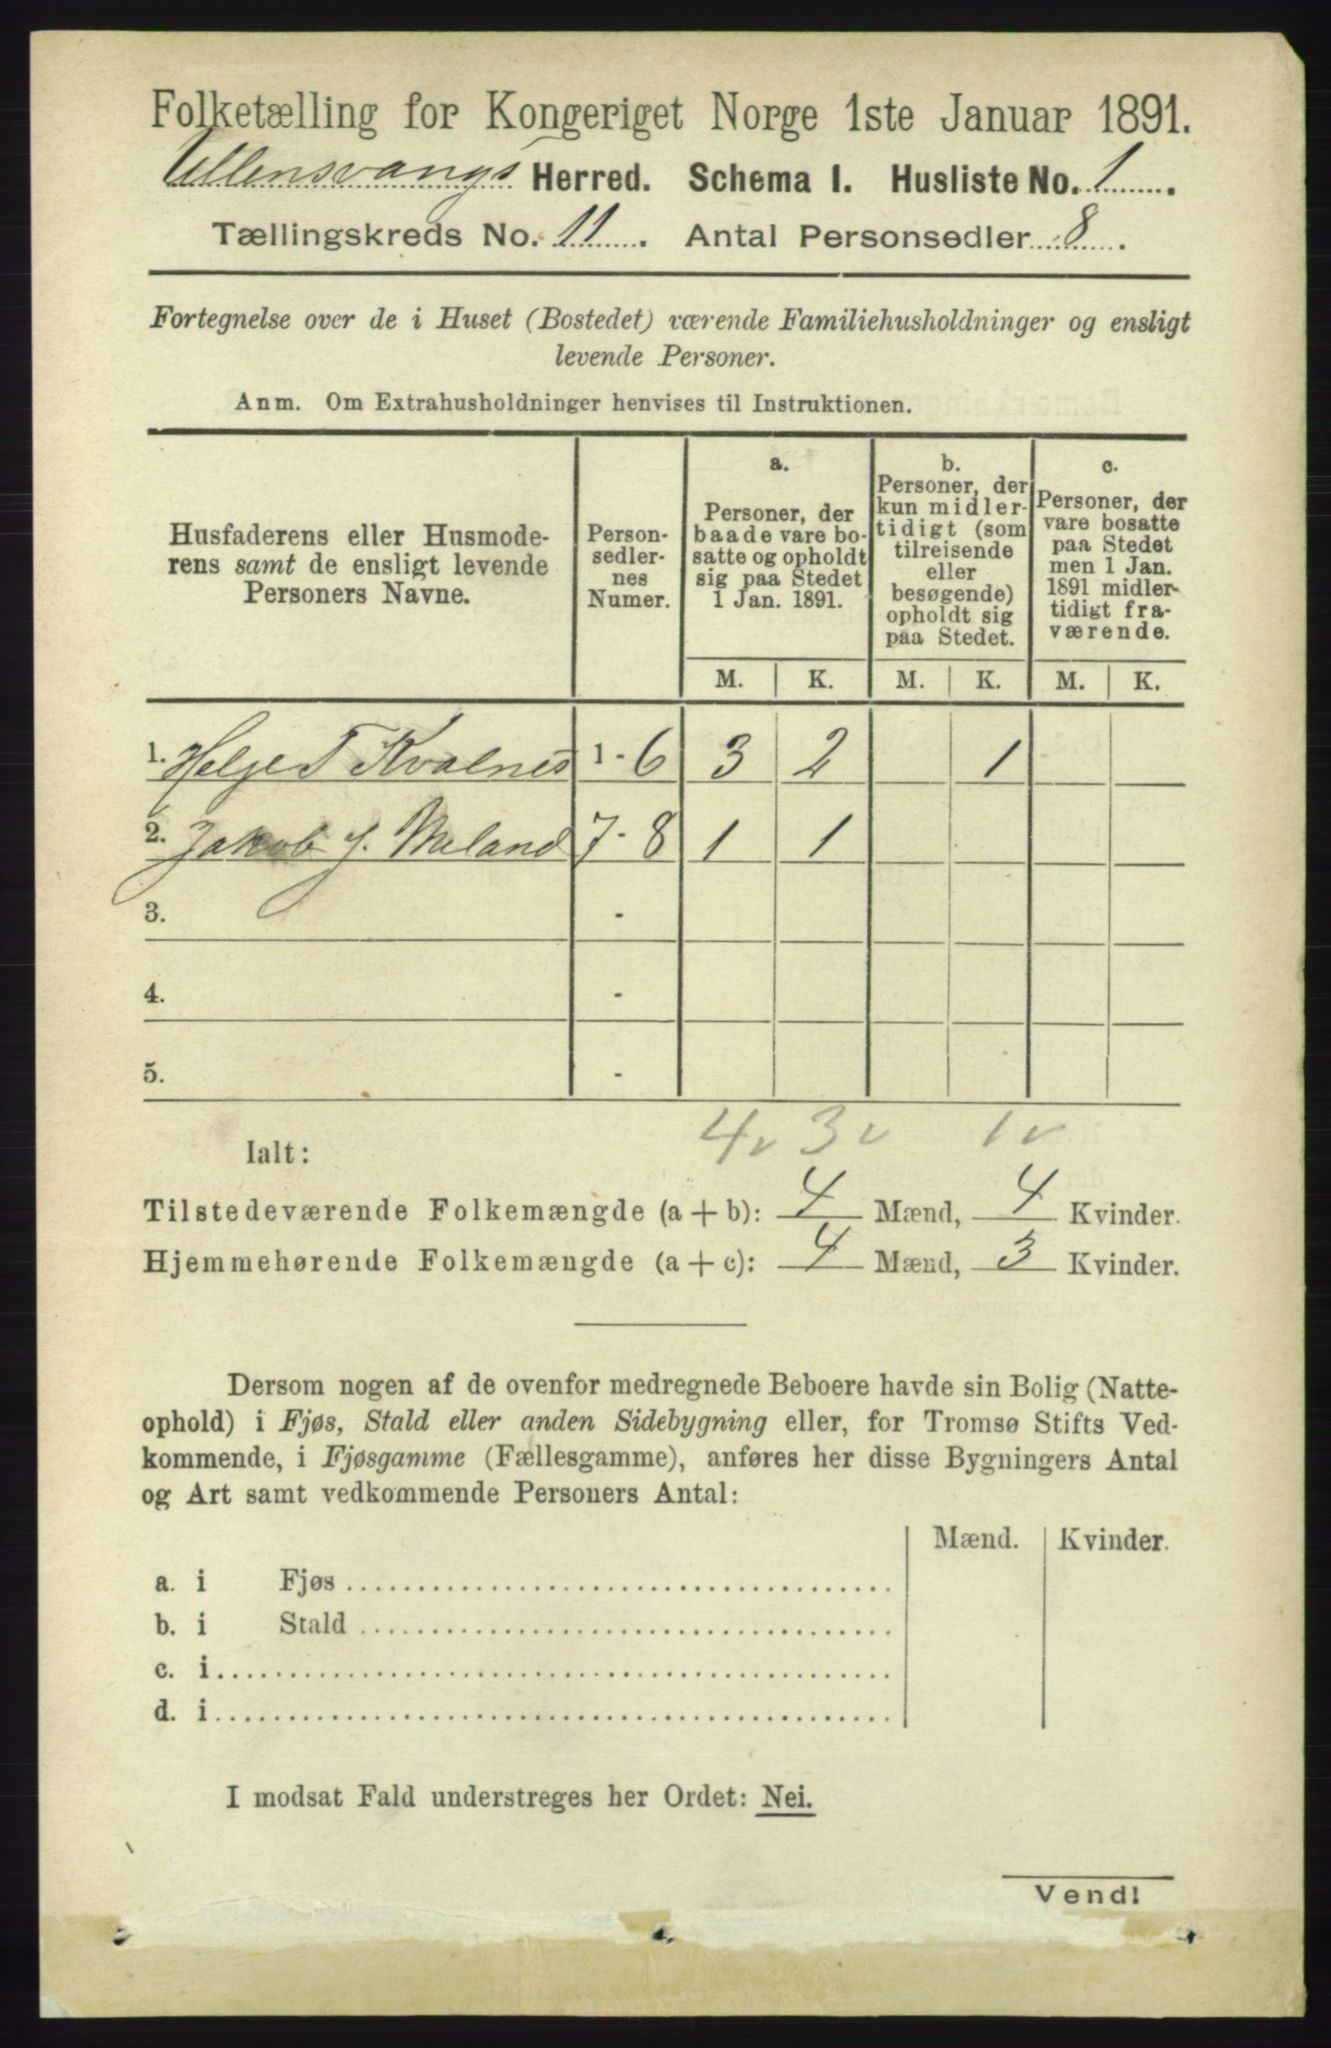 Folketælling for Kongeriget Norge 1ste Januar 1891.
Ullensvangs Herred. Schema I. Husliste No. 1.
Tællingskreds No. 11. Antal Personsedler 8.
Fortegnelse over de i Huset (Bostedet) værende Familiehusholdninger og ensligt
levende Personer.
Anm. Om Extrahusholdninger henvises til Instruktionen.
Husfaderens eller Husmode-
rens samt de ensligt levende
Personers Navne.
Person-
sedler-
nes
Numer.
a.
Personer, der
baade vare bo-
satte og opholdt
sig paa Stedet
1 Jan. 1891.
b.
Personer, der
kun midler-
tidigt (som
tilreisende
eller
besøgende)
opholdt sig
paa Stedet.
c.
Personer, der
vare bosatte
paa Stedet
men 1 Jan.
1891 midler-
tidigt fra-
værende.
M. K. M. K. M. K.
1. Helje T Kvalnes 1 - 6 3 2 1
2. Jakob J. Meland 7 - 8 1 1
3. -
4. -
5. -
4 v 3 v 1 v
Ialt:
Tilstedeværende Folkemængde (a + b): 4 Mænd, 4 Kvinder.
Hjemmehørende Folkemængde (a + c): 4 Mænd, 3 Kvinder.
Dersom nogen af de ovenfor medregnede Beboere havde sin Bolig (Natte-
ophold) i Fjøs, Stald eller anden Sidebygning eller, for Tromsø Stifts Ved-
kommende, i Fjøsgamme (Fællesgamme), anføres her disse Bygningers Antal
og Art samt vedkommende Personers Antal:
Mænd. Kvinder.
a. i Fjøs
b. i Stald
c. i
d. i
I modsat Fald understreges her Ordet: Nei.
Vend!